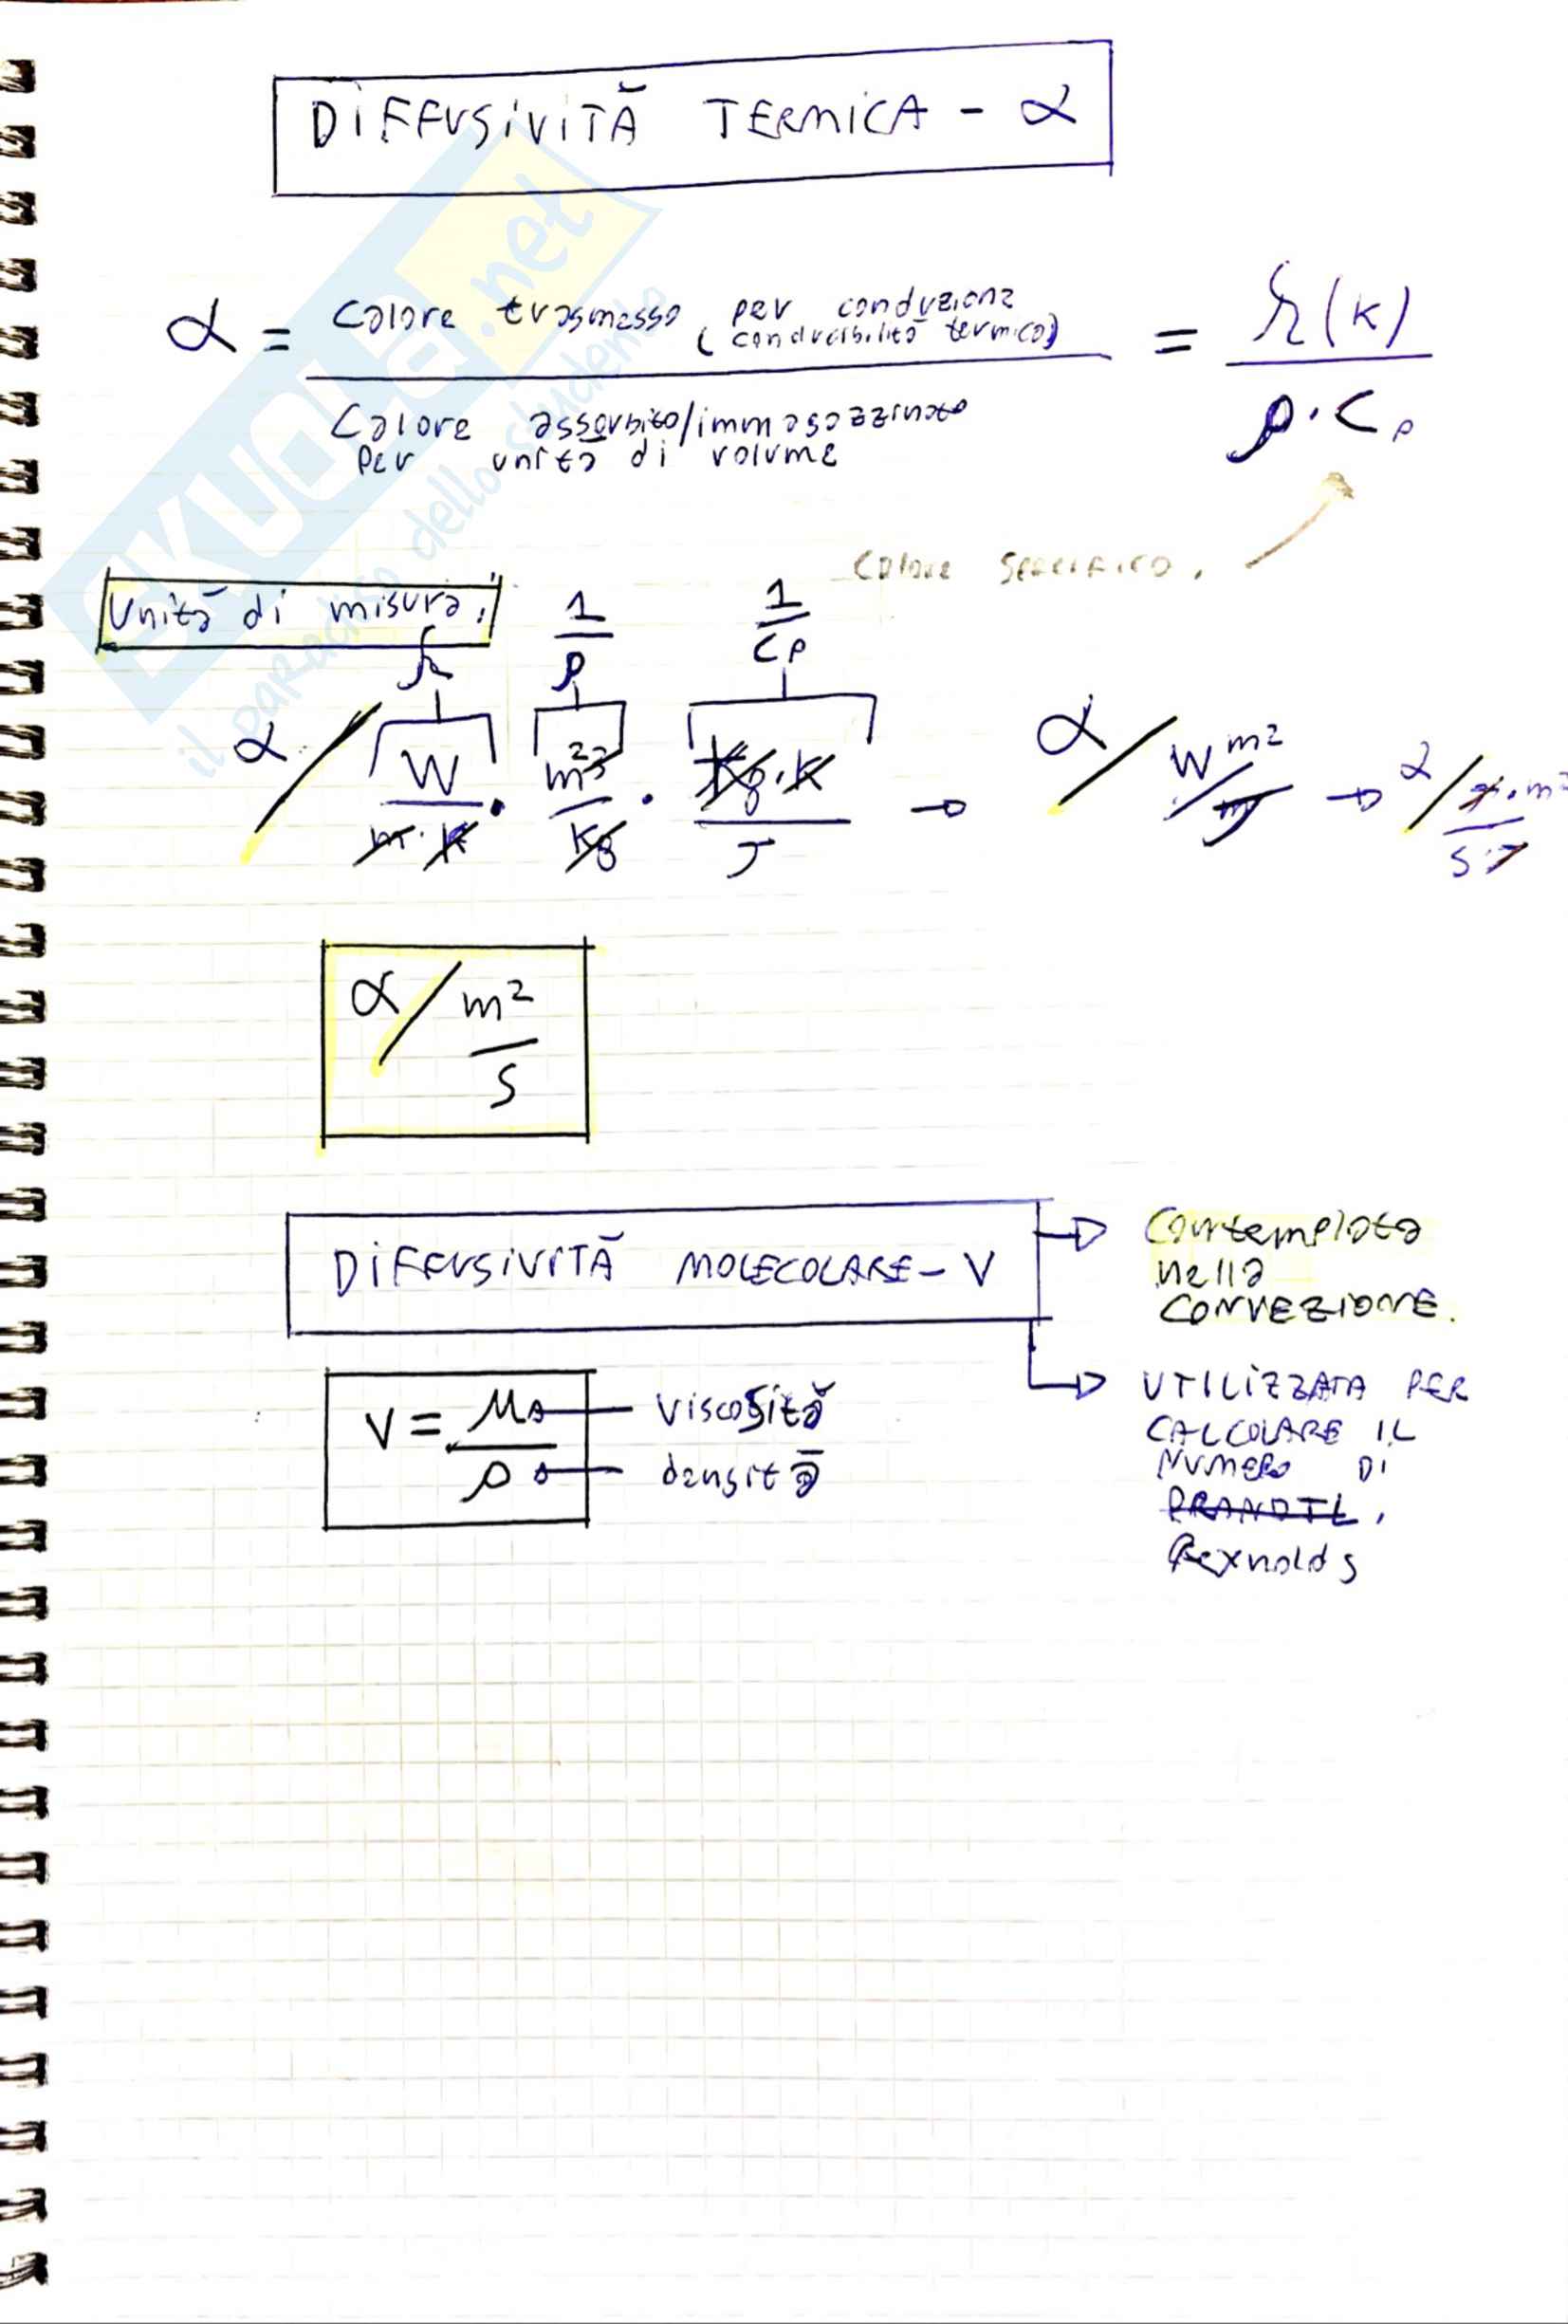 DIFFUSIVITÀ TERMICA - α
α = Calore trasmesso per conduzione (conducibilità termica) / Calore assorbito/immagazzinato per unità di volume = λ(k) / ρ·Cp
Calore specifico.
Unità di misura:
λ 1/ρ 1/Cp
α / W/m·K · m³/kg · kg·K/J → α / W m²/J → α / J·m²/s J
α / m²/s
DIFFUSIVITÀ MOLECOLARE - V
Contemplata
nella
CONVEZIONE.
V = μ/ρ
viscosità
densità
UTILIZZATA PER
CALCOLARE IL
NUMERO DI
PRANDTL.
Reynolds
SKUOLA.net
il paradiso dello studente